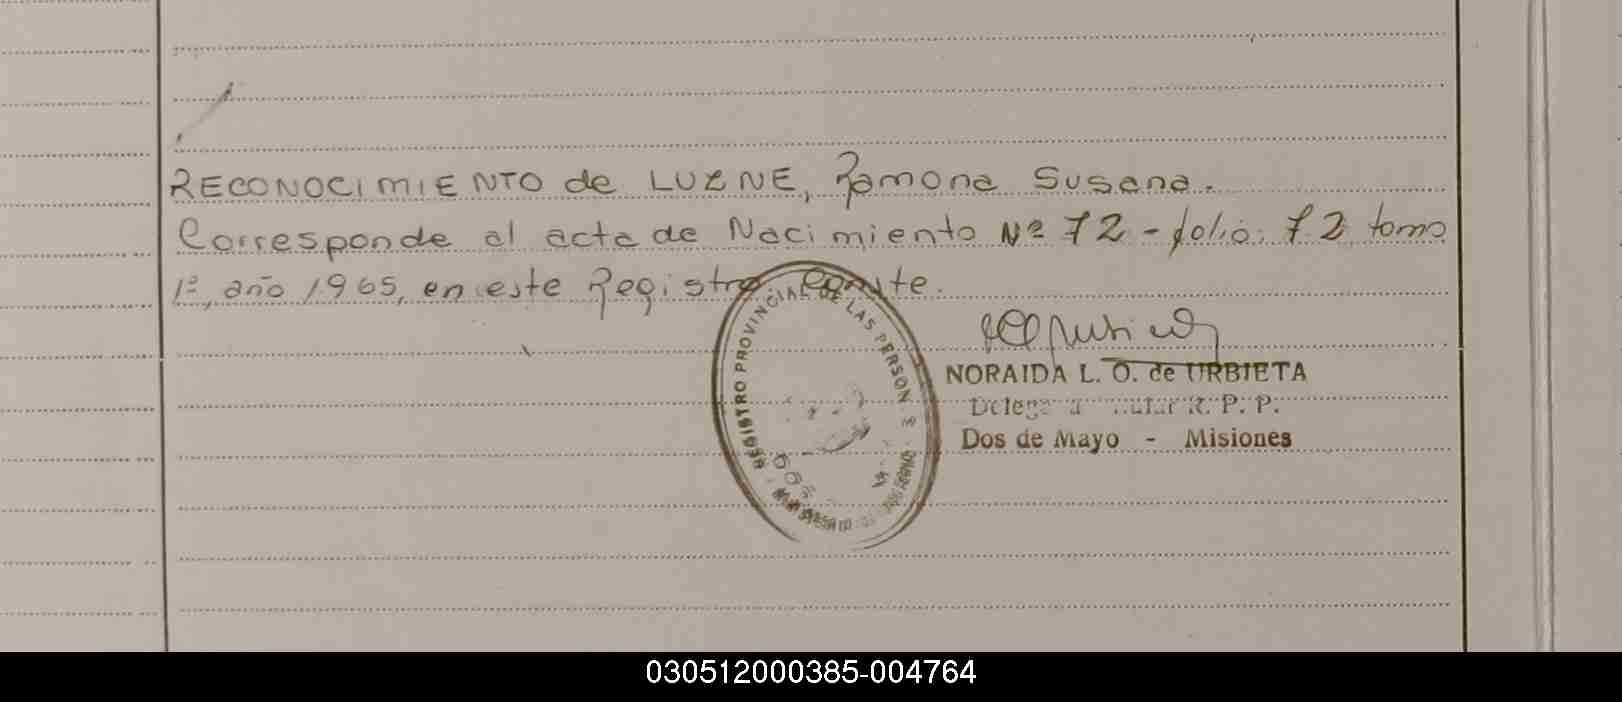 RECONOCIMIENTO de LUZNE, Ramona Susana.
Corresponde al acta de Nacimiento Nº 72 - folio: 72 tomo
1º, año 1965, en este Registro. Conste.
REGISTRO PROVINCIAL DE LAS PERSONAS
NORAIDA L. O. de URBIETA
R. P. P.
Dos de Mayo - Misiones
030512000385-004764